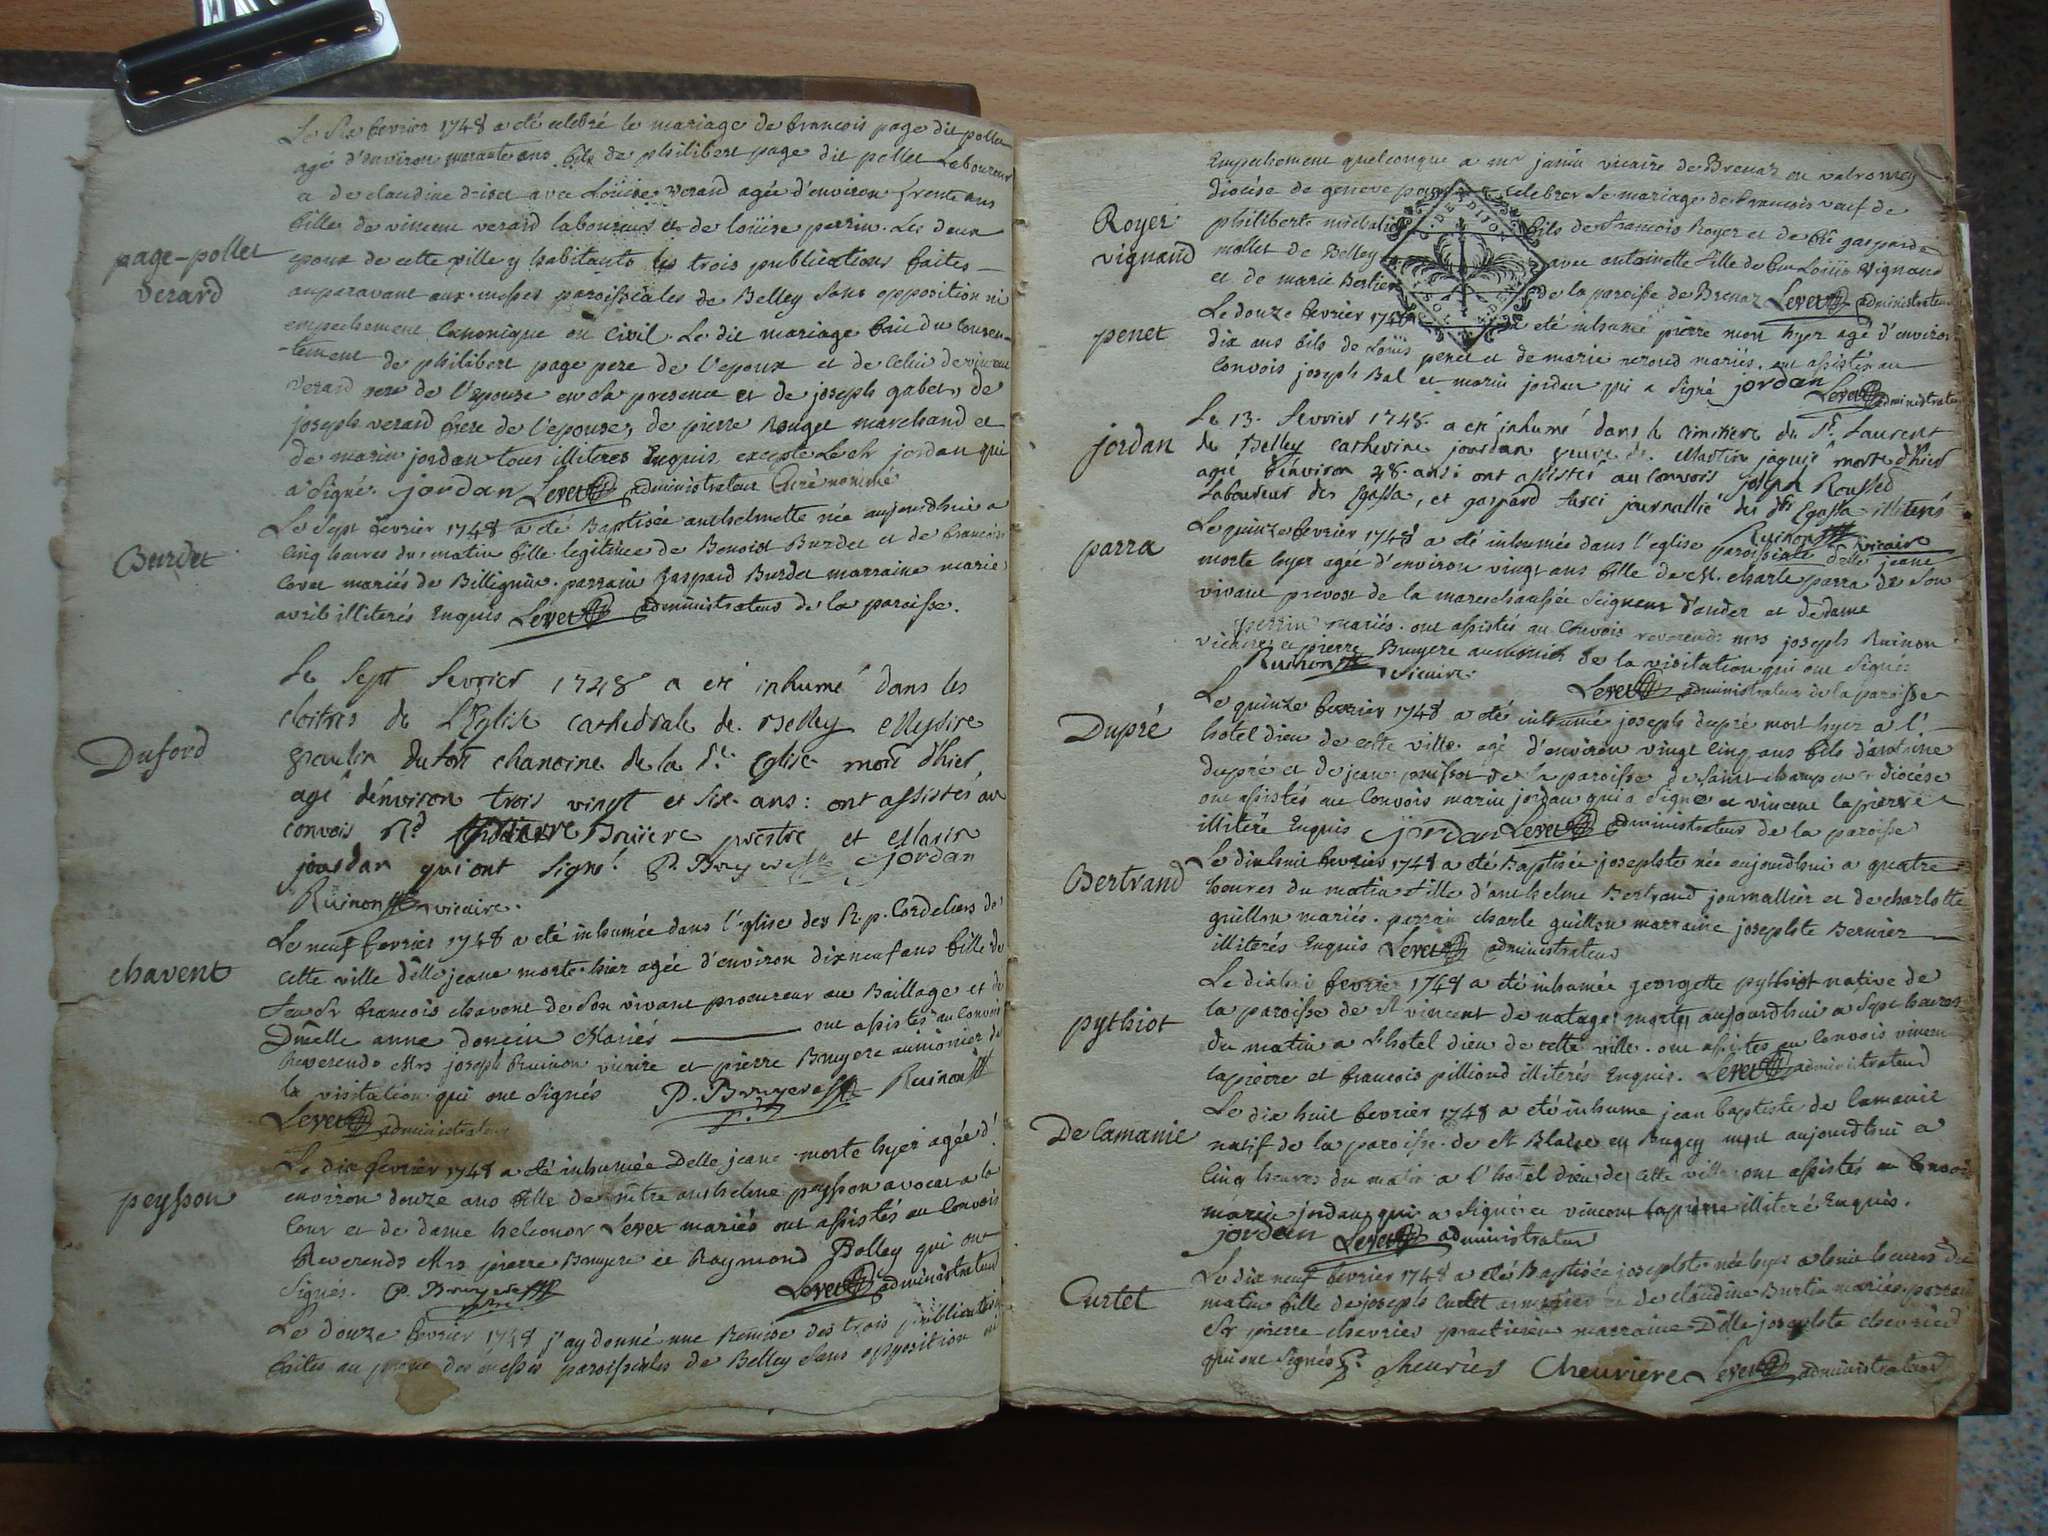 Le six fevrier 1748 a eté celebré le mariage de francois page dit pollet
agé d'environ quarante ans fils de philibert page dit pollet Laboureur
a de claudine avec Loüise verard agée d'environ trente ans
fille de vincent verard laboureur et de loüise perrin. Les deux
epoux de cette ville y habitants les trois publications faites
page-pollet
verard
auparavant aux messes paroissiales de Belley sans opposition ni
empechement Canonique ou civil. Le dit mariage fait du consen-
-tement de philibert page pere de l'epoux et de celui de vincent
verard pere de l'epouse en sa presence et de joseph gabet, de
joseph verard frere de l'epouse, de pierre Rouget marchand et
de marin jordan tous illiteres Enquis excepté Le sr jordan qui
a signé. jordan Levet administrateur
Le sept fevrier 1748 a eté Baptisée anthelmette née aujourdhui a
Burdet
cinq heures du matin fille legitime de Benoist Burdet et de francoise
Cavet mariés de Billignin. parrain gaspard Burdet marraine marie
avril illiterés Enquis Levet administrateur de la paroisse.
Le Sept fevrier 1748 a eté inhumé dans les
cloitres de L'Eglise cathedrale de Belley Messire
Duford
dufort chanoine de la dte Eglise mort d'hier
agé d'énviron trois vingt et six ans: ont assistés au
convois Rd pierre Bruiere prestre et Marin
jourdan qui ont signé. P. Bruyere jordan
Ruinon vicaire.
Le neuf fevrier 1748 a eté inhumée dans l'eglise des R. p. Cordeliers de
chavent
cette ville delle jeane morte hier agée d'environ dix neuf ans fille de
feu Sr francois chavent de son vivant procureur au Baillage et de
Dmelle anne doncin Mariés ont assistés au Convoi
Reverends Mrs joseph Ruinon vicaire et pierre Bruyere aumonier de
la visitation qui ont signés P. Bruyere Ruinon
Levet administrateur
Le dix fevrier 1748 a eté inhumée Delle jeane morte hyer agée d'
peysson
environ douze ans fille de mtre anthelme peysson avocat a la
Cour et de dame heleonor Levet mariés ont assistés au Convois
Reverends Mrs pierre Bruyere et Raymond Bolley qui ont
signés. P. Bruyere Levet administrateur
Le douze fevrier 1748 j'ay donné une Remise des trois publications
faites au prone des messes paroissiales de Belley sans opposition ni
Empechement quelconque a mr janin vicaire de Brenaz en valromey
diocése de geneve pour celebrer le mariage de francois veuf de
Royer
vignand
philiberte fils de francois Royer et de gasparde
mollet de Belley avec antoinette fille de feu Loüis vignand
et de marie Bertier de la paroisse de Brenaz Levet administrateur
Le douze fevrier 1748 a eté inhumé pierre mort hyer agé d'environ
penet
dix ans fils de Loüis penet et de marie mariés. ont assistés au
Convois joseph Bal et marin jordan qui a signé jordan
Levet administrateur
Le 13. fevrier 1748. a eté inhumé dans le cimitiere de St. Laurent
jordan
de Belley catherine jourdan veuve de Martin morte d'hier
agée d'énviron 28 ans: ont assistés au convois joseph Roussed
Laboureur et gaspard journallié illiterés
Ruinon vicaire
Le quinze fevrier 1748 a eté inhumée dans l'eglise paroissiale delle jeane
parra
morte hyer agée d'environ vingt ans fille de M. charle parra de son
vivant prevost de la marechaussée Seigneur d'andert et de dame
perrin mariés. ont assistés au Convois reverends mrs joseph Ruinon
vicaire et pierre Bruyere aumonier de la visitation qui ont signés
Ruinon vicaire. Levet administrateur de la paroisse
Le quinze fevrier 1748 a eté inhumé joseph dupré mort hyer a l'
Dupré
hotel dieu de cette ville agé d'environ vingt cinq ans fils d'antoine
dupré et de jeane de la paroisse de saint champ en ce diocése
ont assistés au Convois marin jordan qui a signé et vincent lapierre
illiteré Enquis jordan Levet administrateur de la paroisse
Le dixhuit fevrier 1748 a eté Baptisée josephte née aujourdhui a quatre
Bertrand
heures du matin fille d'anthelme Bertrand journallier et de charlotte
guillon mariés. parrain charle guillon marraine josephte Bernier
illiterés Enquis Levet administrateur
Le dixhuit fevrier 1748 a eté inhumée georgette pythiot native de
pythiot
la paroisse de St vincent de natage morte aujourdhui a Sept heures
du matin a l'hotel dieu de cette ville. ont assistés au Convois vincent
lapierre et francois pilliond illiterés Enquis. Levet administrateur
Le dix huit fevrier 1748 a eté inhumé jean baptiste de lamanie
De lamanie
natif de la paroisse de St Blaise en Bugey mort aujourdhui a
cinq heures du matin a l'hotel dieu de cette ville ont assistés au Convoi
marin jordan qui a signé et vincent lapierre illiteré Enquis.
jordan Levet administrateur
Le dix neuf fevrier 1748 a eté Baptisée josephte née hyer a huit heures de
Curtet
matin fille de joseph Curtet et de claudine Burtin mariés. parrain
Sr pierre chevrier practicien marraine Delle josephte chevrier
qui ont signés P. Cheuries Cheuriere Levet administrateur